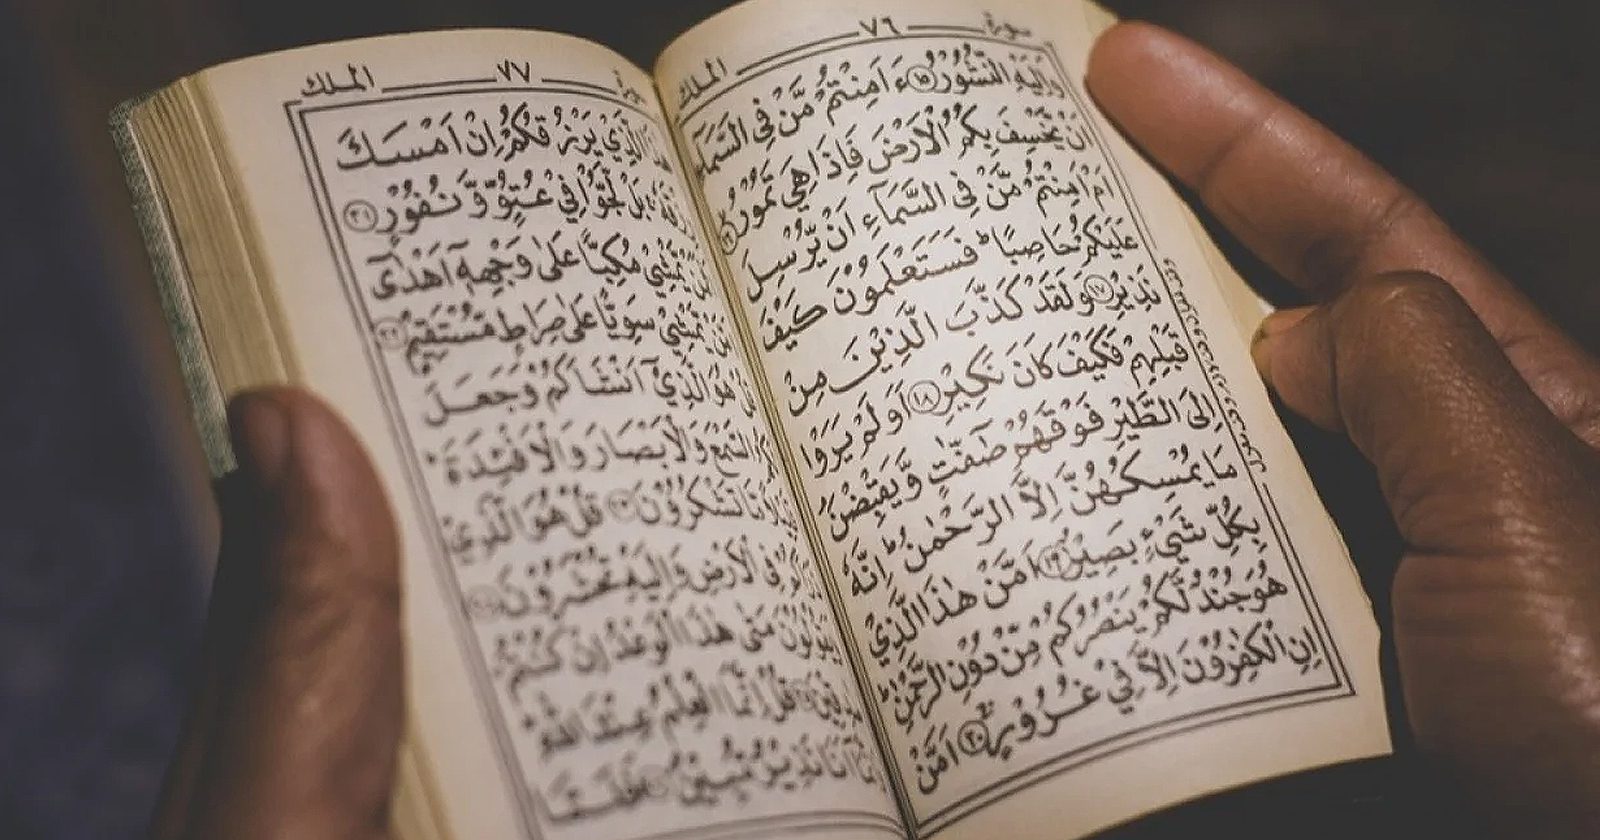 سورة ٧٦ الملك
وَاِلَيْهِ النُّشُوْرُ ١٥ ءَاَمِنْتُمْ مَّنْ فِي السَّمَآءِ
اَنْ يَّخْسِفَ بِكُمُ الْاَرْضَ فَاِذَا هِيَ تَمُوْرُ ١٦
اَمْ اَمِنْتُمْ مَّنْ فِي السَّمَآءِ اَنْ يُّرْسِلَ
عَلَيْكُمْ حَاصِبًا ط فَسَتَعْلَمُوْنَ كَيْفَ
نَذِيْرِ ١٧ وَلَقَدْ كَذَّبَ الَّذِيْنَ مِنْ
قَبْلِهِمْ فَكَيْفَ كَانَ نَكِيْرِ ١٨ اَوَلَمْ يَرَوْا
اِلَى الطَّيْرِ فَوْقَهُمْ صٰٓفّٰتٍ وَّيَقْبِضْنَ
مَا يُمْسِكُهُنَّ اِلَّا الرَّحْمٰنُ ط اِنَّهٗ
بِكُلِّ شَيْءٍ بَصِيْرٌ ١٩ اَمَّنْ هٰذَا الَّذِيْ
هُوَ جُنْدٌ لَّكُمْ يَنْصُرُكُمْ مِّنْ دُوْنِ الرَّحْمٰنِ ط
اِنِ الْكٰفِرُوْنَ اِلَّا فِيْ غُرُوْرٍ ٢٠ اَمَّنْ
٧٧ الملك
هٰذَا الَّذِيْ يَرْزُقُكُمْ اِنْ اَمْسَكَ
رِزْقَهٗ بَلْ لَّجُّوْا فِيْ عُتُوٍّ وَّنُفُوْرٍ ٢١
يَّمْشِيْ مُكِبًّا عَلٰى وَجْهِهٖٓ اَهْدٰٓى
يَّمْشِيْ سَوِيًّا عَلٰى صِرَاطٍ مُّسْتَقِيْمٍ ٢٢
هُوَ الَّذِيْٓ اَنْشَاَكُمْ وَجَعَلَ
السَّمْعَ وَالْاَبْصَارَ وَالْاَفْئِدَةَ
مَّا تَشْكُرُوْنَ ٢٣ قُلْ هُوَ الَّذِيْ
فِي الْاَرْضِ وَاِلَيْهِ تُحْشَرُوْنَ ٢٤
يَقُوْلُوْنَ مَتٰى هٰذَا الْوَعْدُ اِنْ كُنْتُمْ
صٰدِقِيْنَ قُلْ اِنَّمَا الْعِلْمُ عِنْدَ اللّٰهِ
اَنَا نَذِيْرٌ مُّبِيْنٌ فَلَمَّا